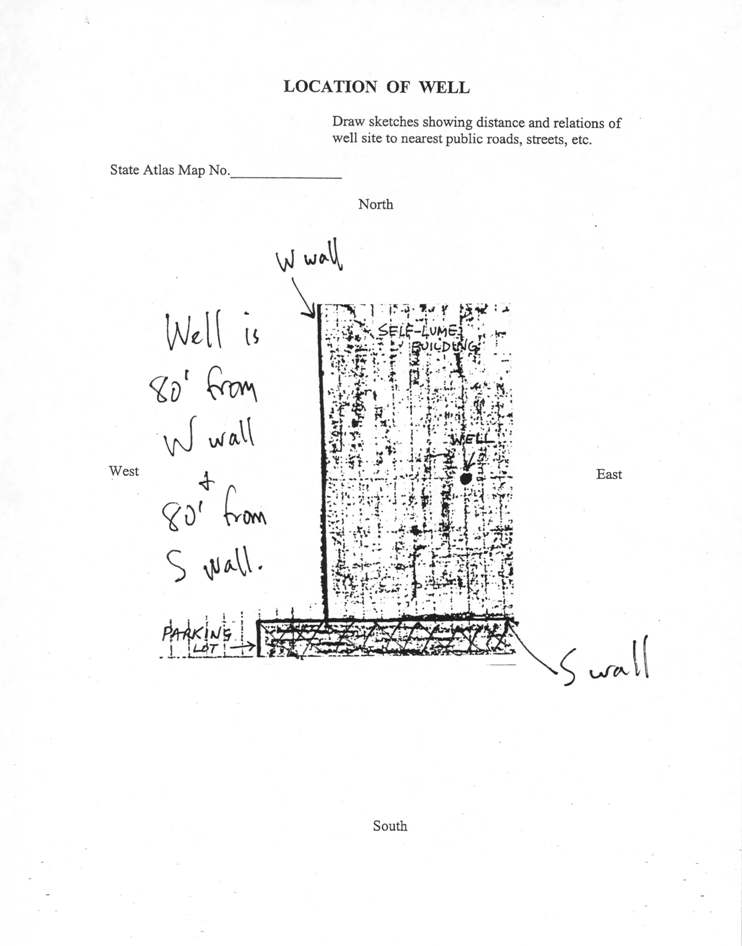 LOCATION OF WELL
Draw sketches showing distance and relations of
well site to nearest public roads, streets, etc.
State Atlas Map No.
North
W wall
Well is
80' from
W wall
+
80' from
S wall.
SELF-LUME
BUILDING
WELL
West
East
PARKING
LOT
S wall
South